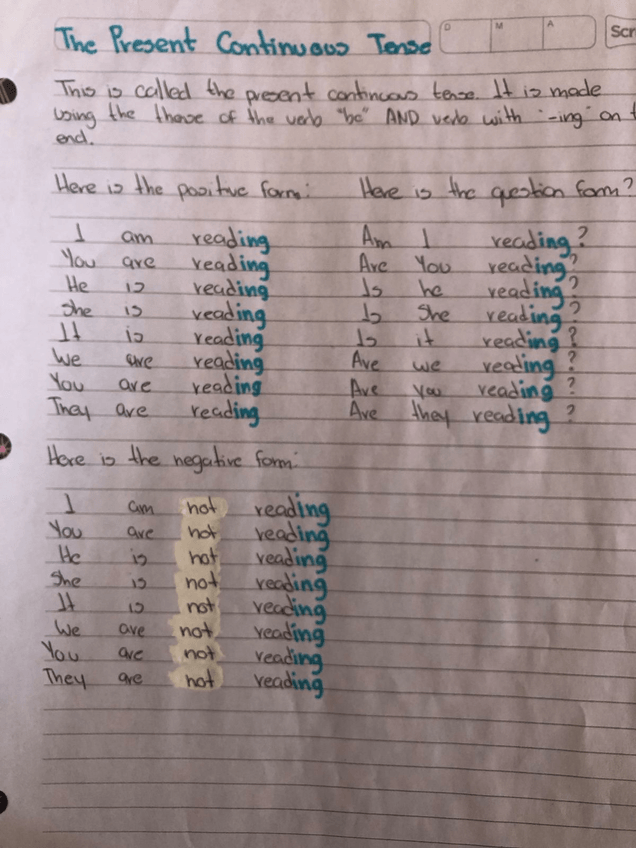 The Present Continuous Tense
D M A Scr
This is called the present continuous tense. It is made
using the thense of the verb "be" AND verb with "-ing" on t
end.
Here is the positive form: Here is the question form?
I am reading Am I reading?
You are reading Are You reading?
He is reading Is he reading?
She is reading Is She reading?
It is reading Is it reading?
We are reading Are we reading?
You are reading Are you reading?
They are reading Are they reading?
Here is the negative form:
I am not reading
You are not reading
He is not reading
She is not reading
It is not reading
We are not reading
You are not reading
They are not reading